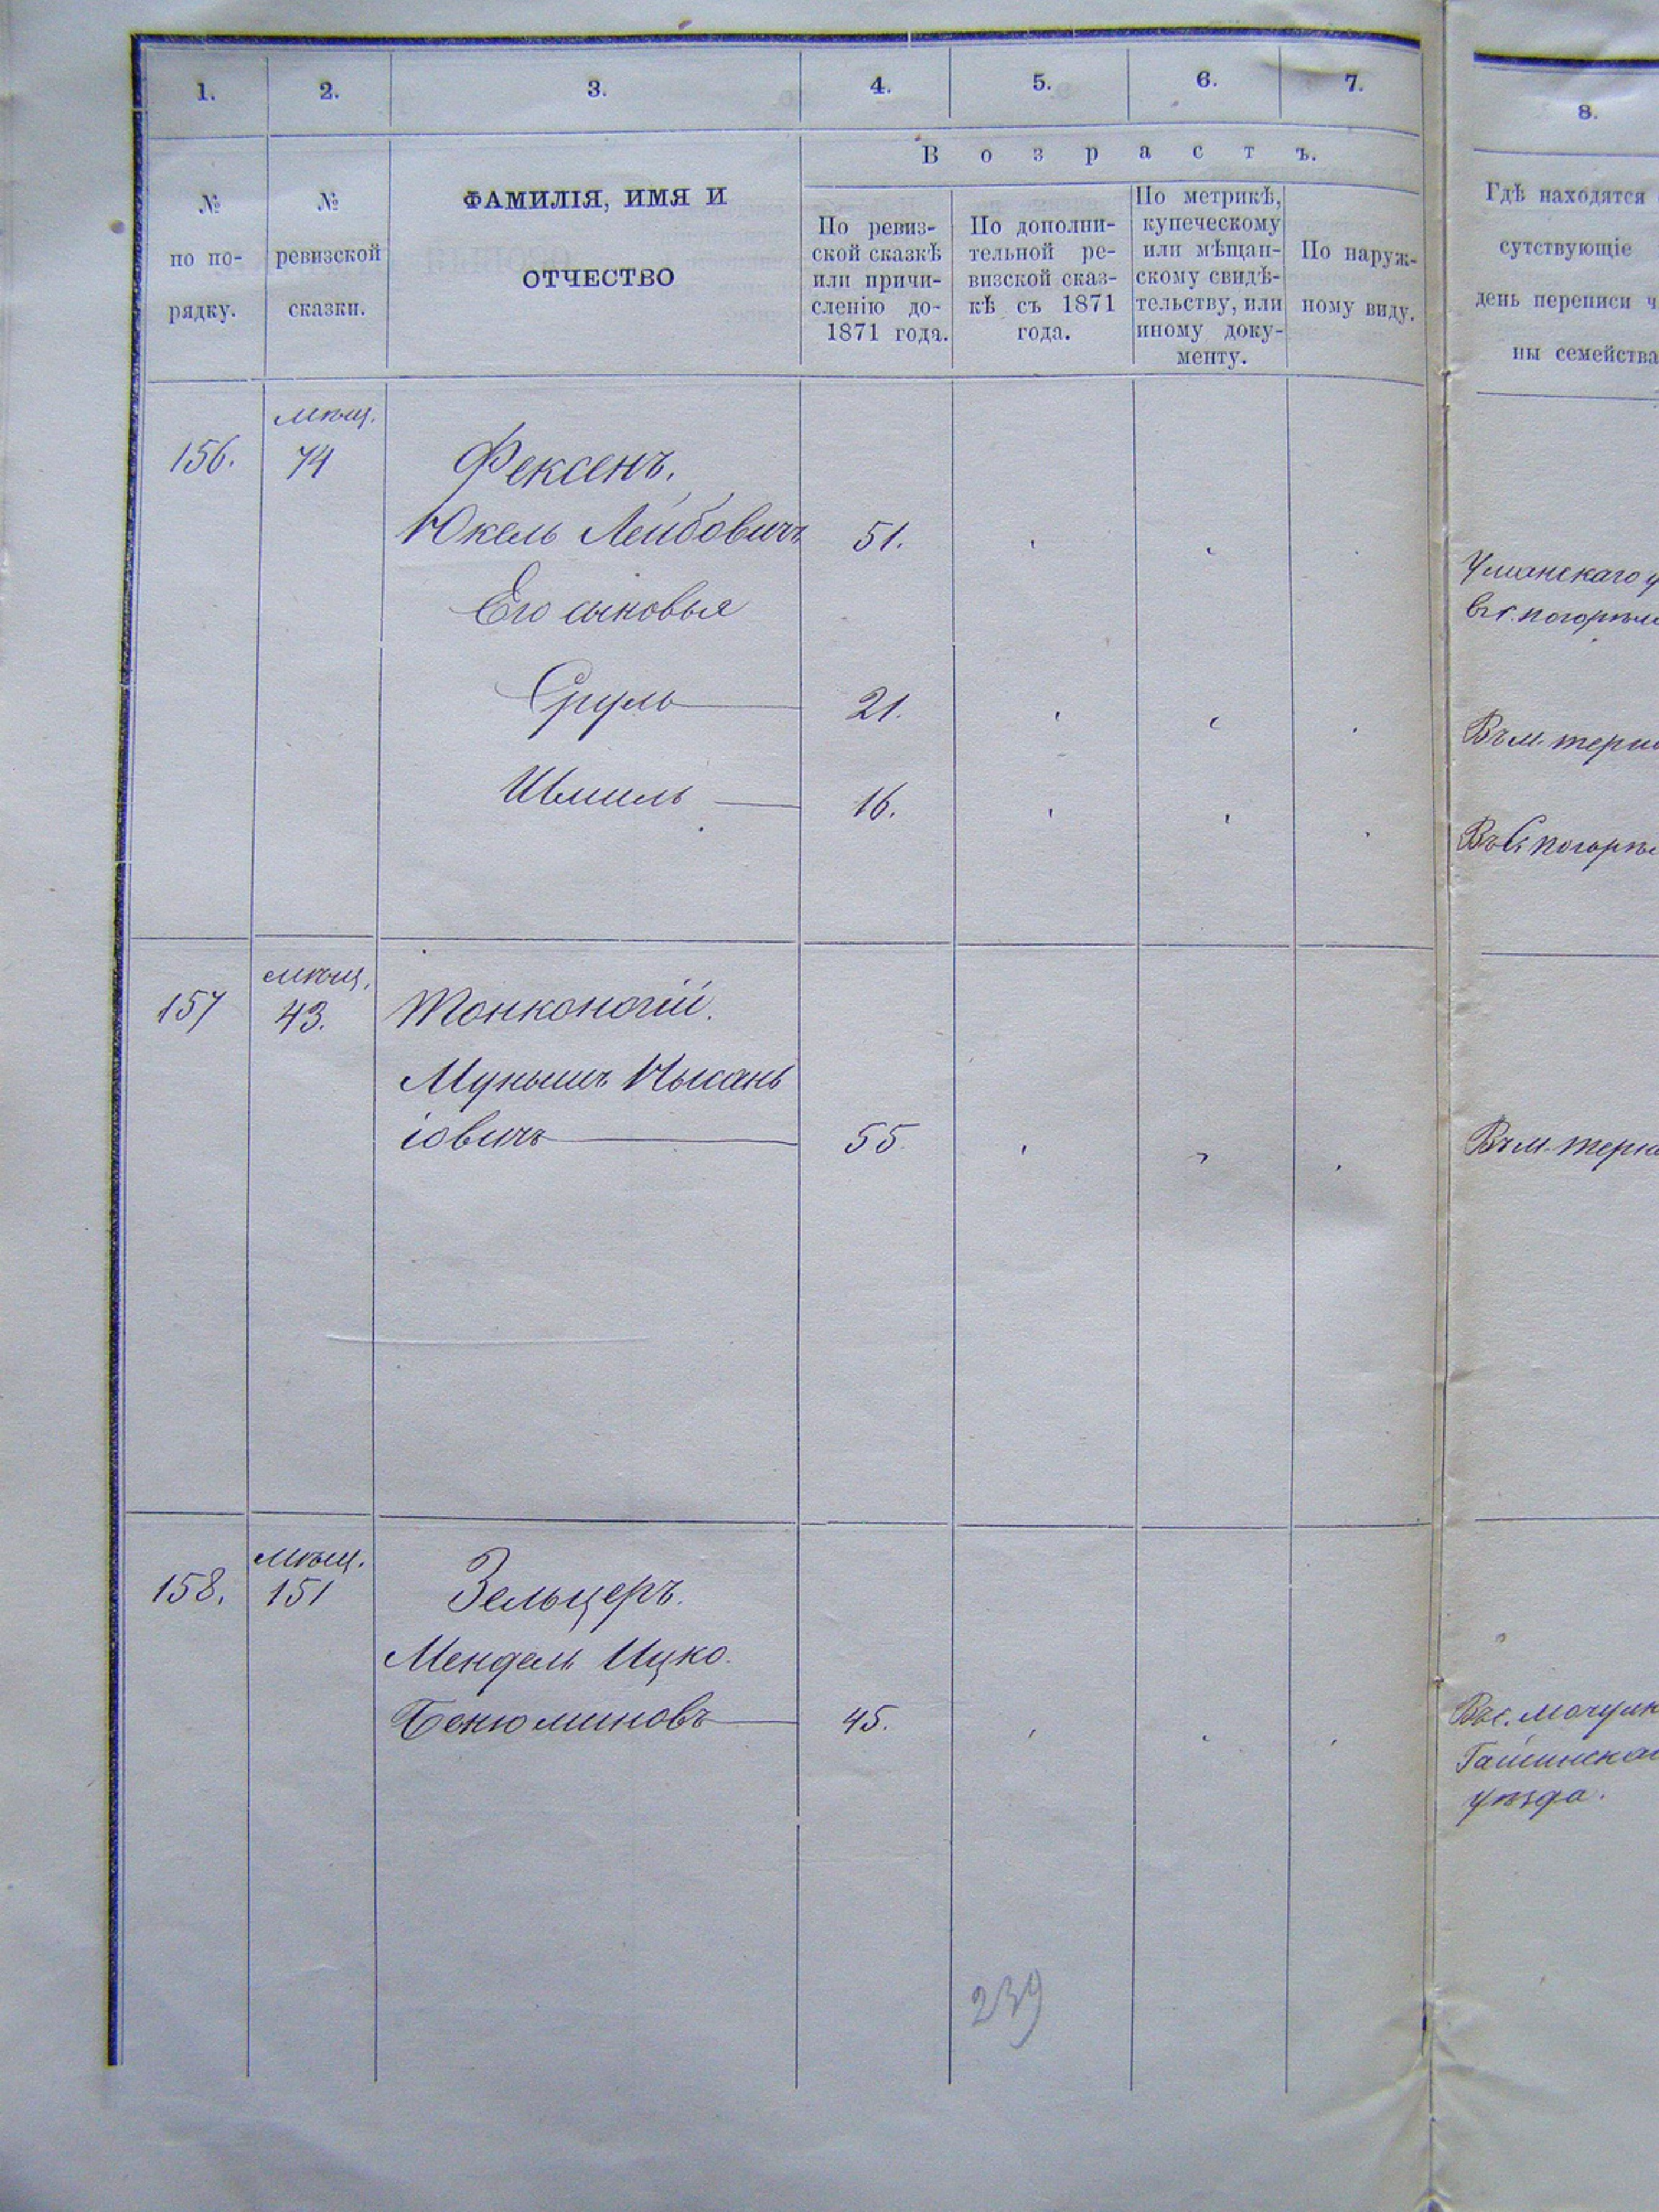 1.
2.
3.
4.
5.
6.
7.
8.
В о з р а с т ъ.
№ по по- рядку.
№ ревизской сказки.
ФАМИЛІЯ, ИМЯ И
ОТЧЕСТВО
По ревиз-
ской сказкѣ
или причи-
сленію до-
1871 года.
По дополни-
тельной ре-
визской сказ-
кѣ съ 1871
года.
По метрикѣ,
купеческому
или мѣщан-
скому свидѣ-
тельству, или
иному доку-
менту.
По наруж-
ному виду.
Гдѣ находятся
сутствующіе
день переписи ч
ны семейства
мѣщ.
156. 74 Фексенъ.
Юкель Лейбовичъ 51.
Уманскаго у
Его сыновья
Сруль 21.
Въ м. терно
Шмиль 16.
Въ с. погорѣл
мѣщ.
157 43. Тонконогій.
іовичъ 55
Въ м. терно
мѣщ.
158. 151 Зельцеръ.
Мендель Ицко
Бенюминовъ 45.
Въ с. мочулк
уѣзда.
239